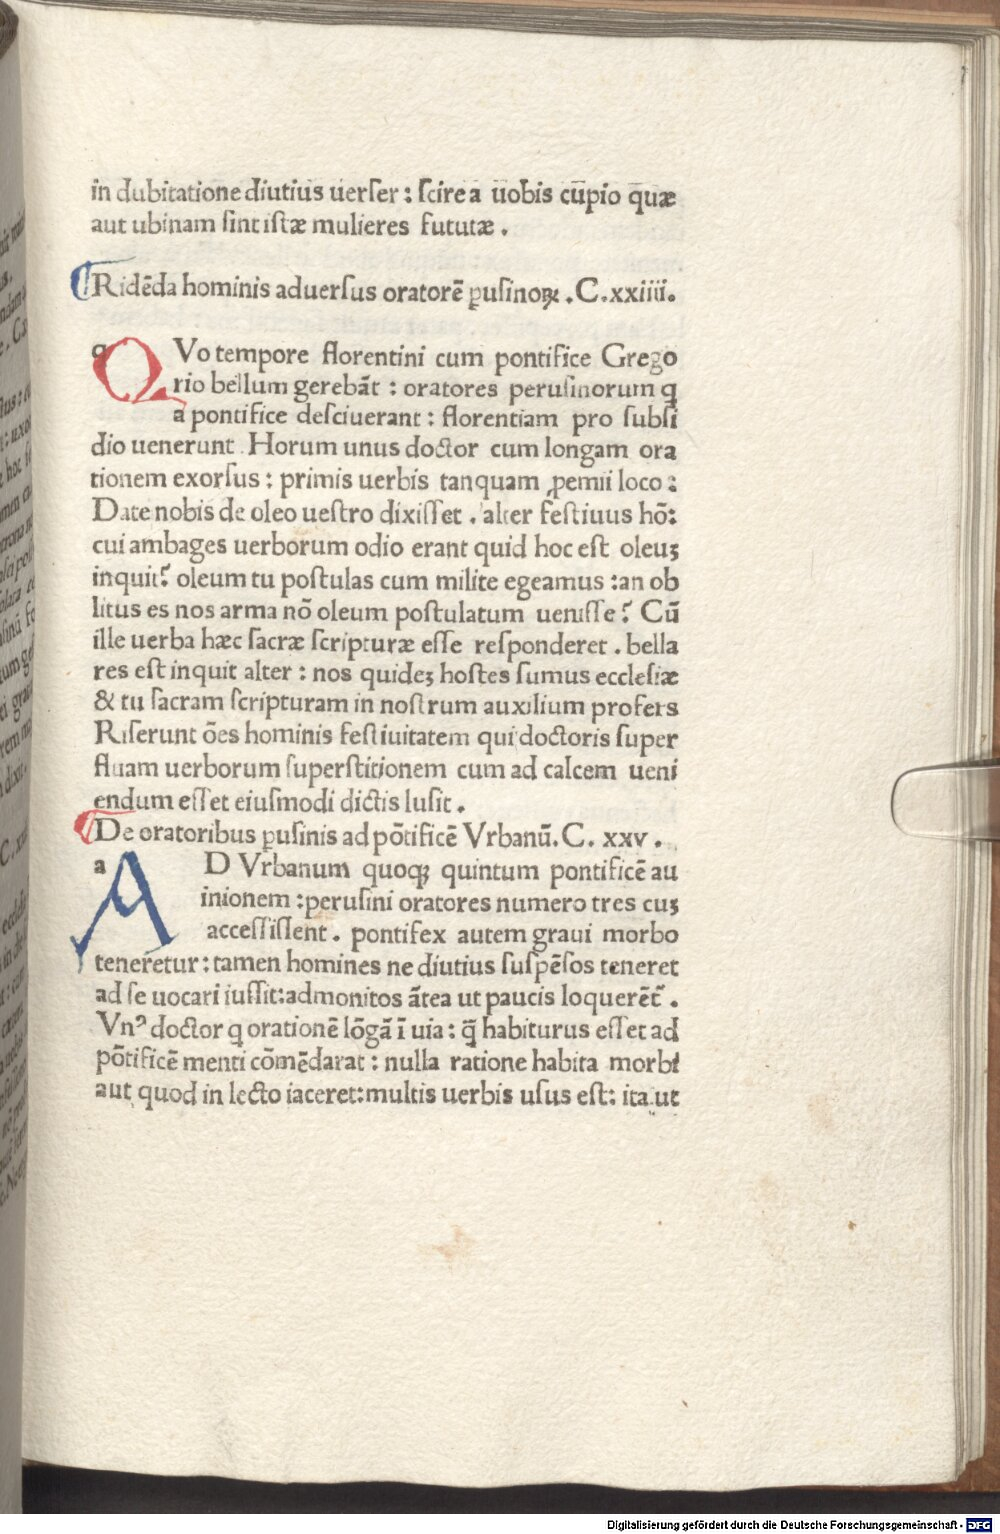 in dubitatione diutius uerſer : ſcire a uobis cupio quæ
aut ubinam ſint iſtæ mulieres fututæ .
Ridēda hominis aduerſus oratorē ꝑuſinoꝝ .C.xxiiii.
QVo tempore florentini cum pontifice Grego
rio bellum gerebāt : oratores peruſinorum q
a pontifice deſciuerant : florentiam pro ſubſi
dio uenerunt . Horum unus doctor cum longam ora
tionem exorſus : primis uerbis tanquam ꝓemii loco :
Date nobis de oleo ueſtro dixiſſet . alter feſtiuus hō:
cui ambages uerborum odio erant quid hoc eſt oleuȝ
inquit? oleum tu poſtulas cum milite egeamus :an ob
litus es nos arma nō oleum poſtulatum ueniſſe? Cū
ille uerba hæc ſacræ ſcripturæ eſſe reſponderet . bella
res eſt inquit alter : nos quideȝ hoſtes ſumus eccleſiæ
& tu ſacram ſcripturam in noſtrum auxilium profers
Riſerunt ōes hominis feſtiuitatem qui doctoris ſuper
fluam uerborum ſuperſtitionem cum ad calcem ueni
endum eſſet eiuſmodi dictis luſit .
De oratoribus ꝑuſinis ad pōtificē Vrbanū. C. xxv .
AD Vrbanum quoqȝ quintum pontificē au
inionem :peruſini oratores numero tres cuȝ
acceſſiſſent . pontifex autem graui morbo
teneretur : tamen homines ne diutius ſuſpēſos teneret
ad ſe uocari iuſſit:admonitos ātea ut paucis loquerēt̄ .
Vnꝰ doctor q orationē lōgā ī uia : q̄ habiturus eſſet ad
pōtificē menti cōmēdarat : nulla ratione habita morbi
aut quod in lecto iaceret:multis uerbis uſus eſt: ita ut
Digitalisierung gefördert durch die Deutsche Forschungsgemeinschaft - DFG